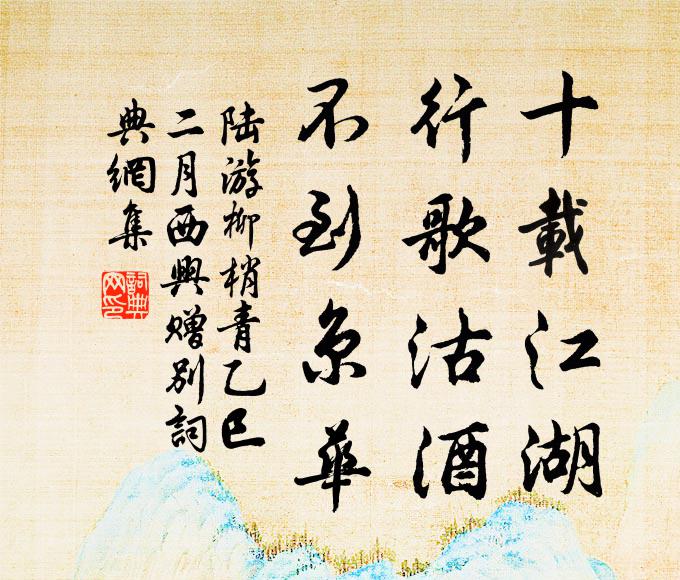 十載江湖
行歌沽酒
不到京華
陆游柳梢青乙巳
二月西興赠别詞
典網集
詞典
网印